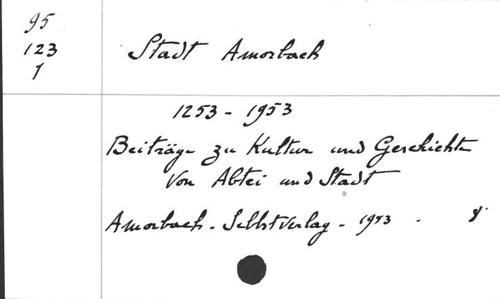 95
123
1
Stadt Amorbach
1253 - 1953
Beiträge zu Kultur und Geschichte
von Abtei und Stadt
Amorbach - Selbstverlag - 1953 - 8°